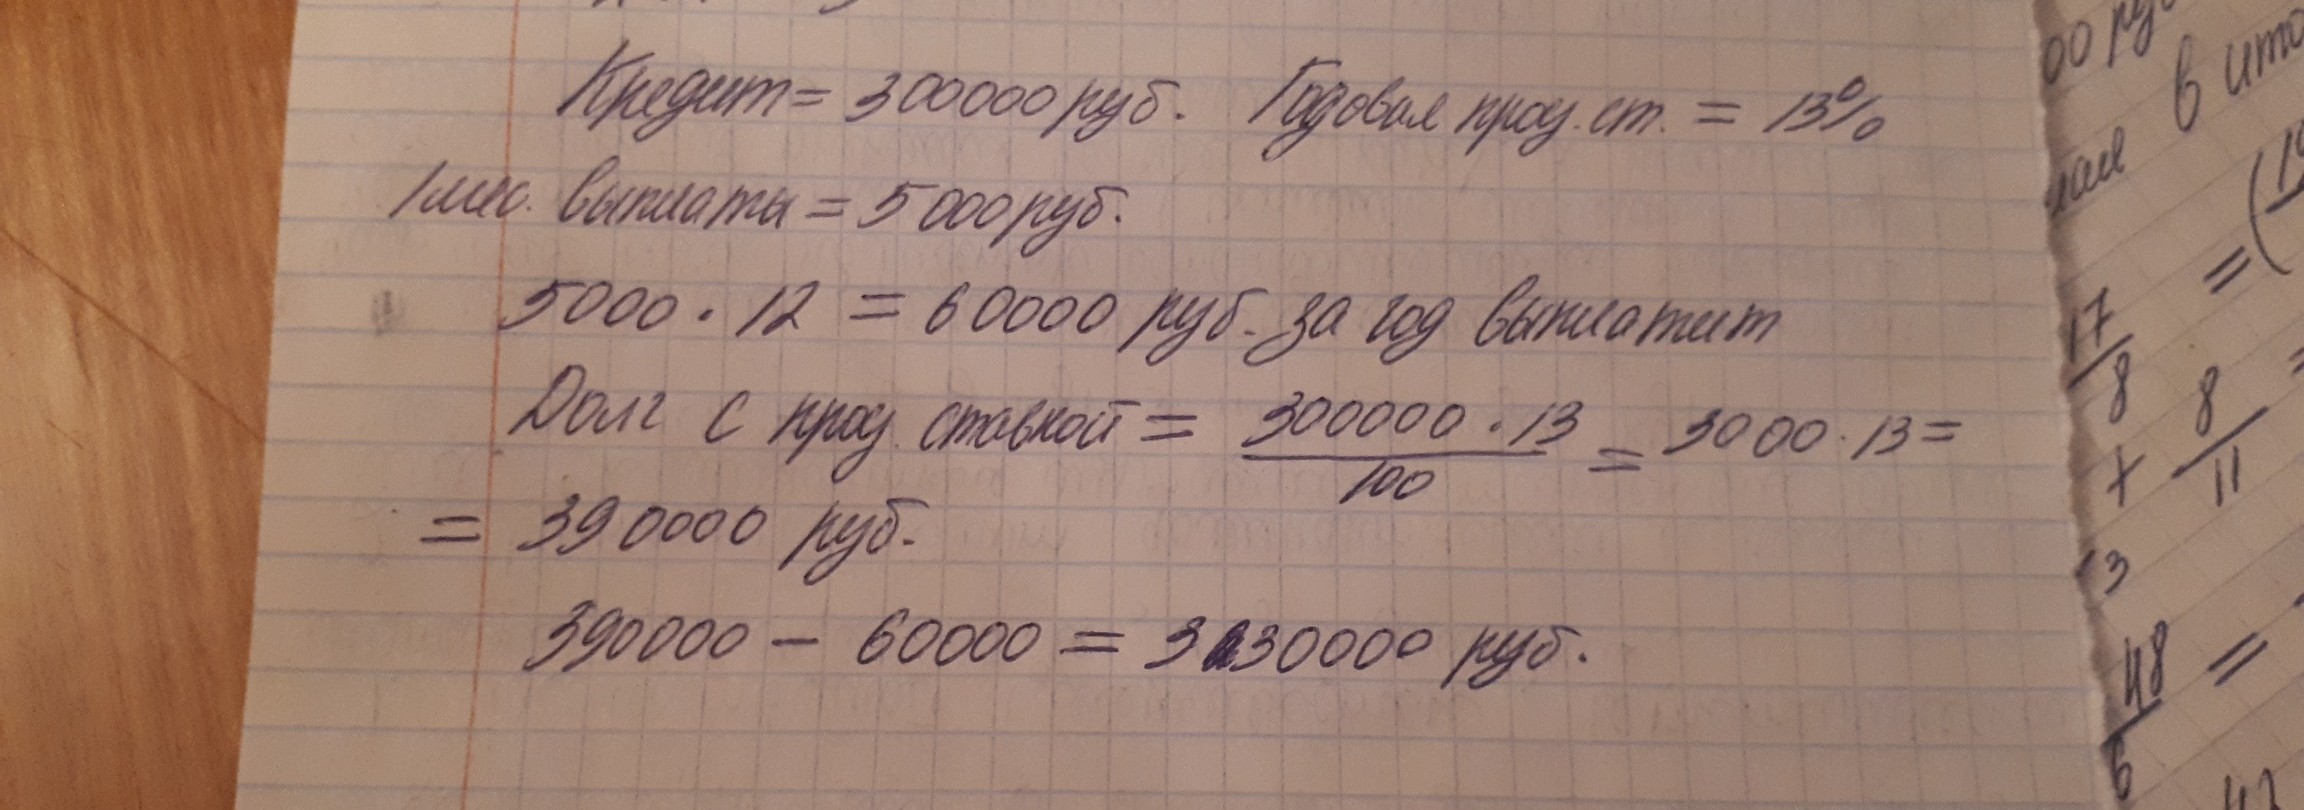 Кредит = 300000 руб. Годовая проц. ст. = 13%
1 мес. выплаты = 5000 руб.
5000 · 12 = 60000 руб. за год выплатит
Долг с проц. ставкой = 300000 · 13 / 100 = 3000 · 13 =
= 390000 руб.
390000 - 60000 = 330000 руб.
00 руб
в ито
= (
17
8
+ 8 / 11
13
48 / 6 =